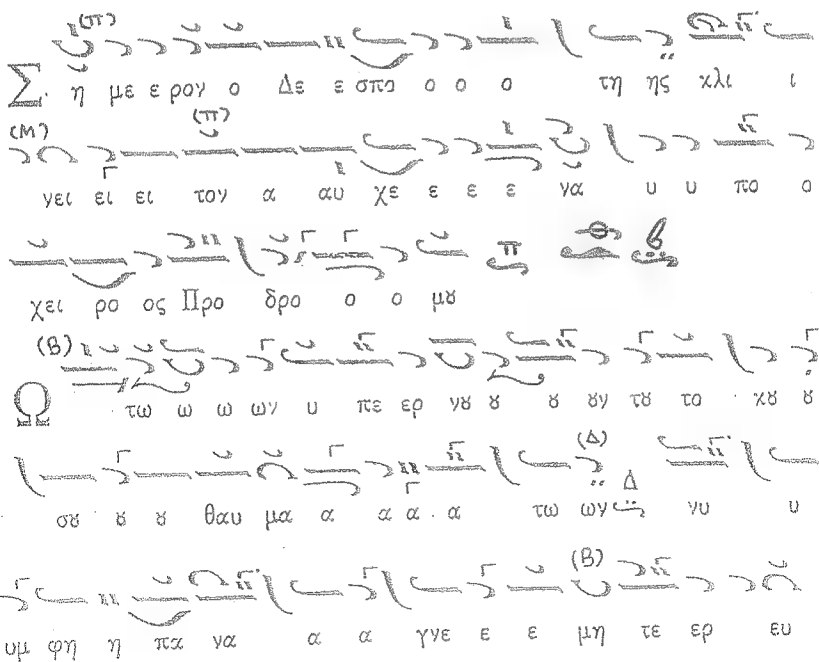 (π)
Σ. η με ε ρον ο Δε ε σπο ο ο ο τη ης κλι ι
(Μ) (π)
νει ει ει τον α αυ χε ε ε ε να υ υ πο ο
χει ρο ος Προ δρο ο ο μȣ
π
(Β)
Ω τω ω ω ων υ πε ερ νȣ ȣ ȣ ȣν τȣ το κȣ ȣ
(Δ)
σȣ ȣ ȣ θαυ μα α α α α τω ων Δ νυ υ
(Β)
υμ φη η πα να α α γνε ε ε μη τε ερ ευ